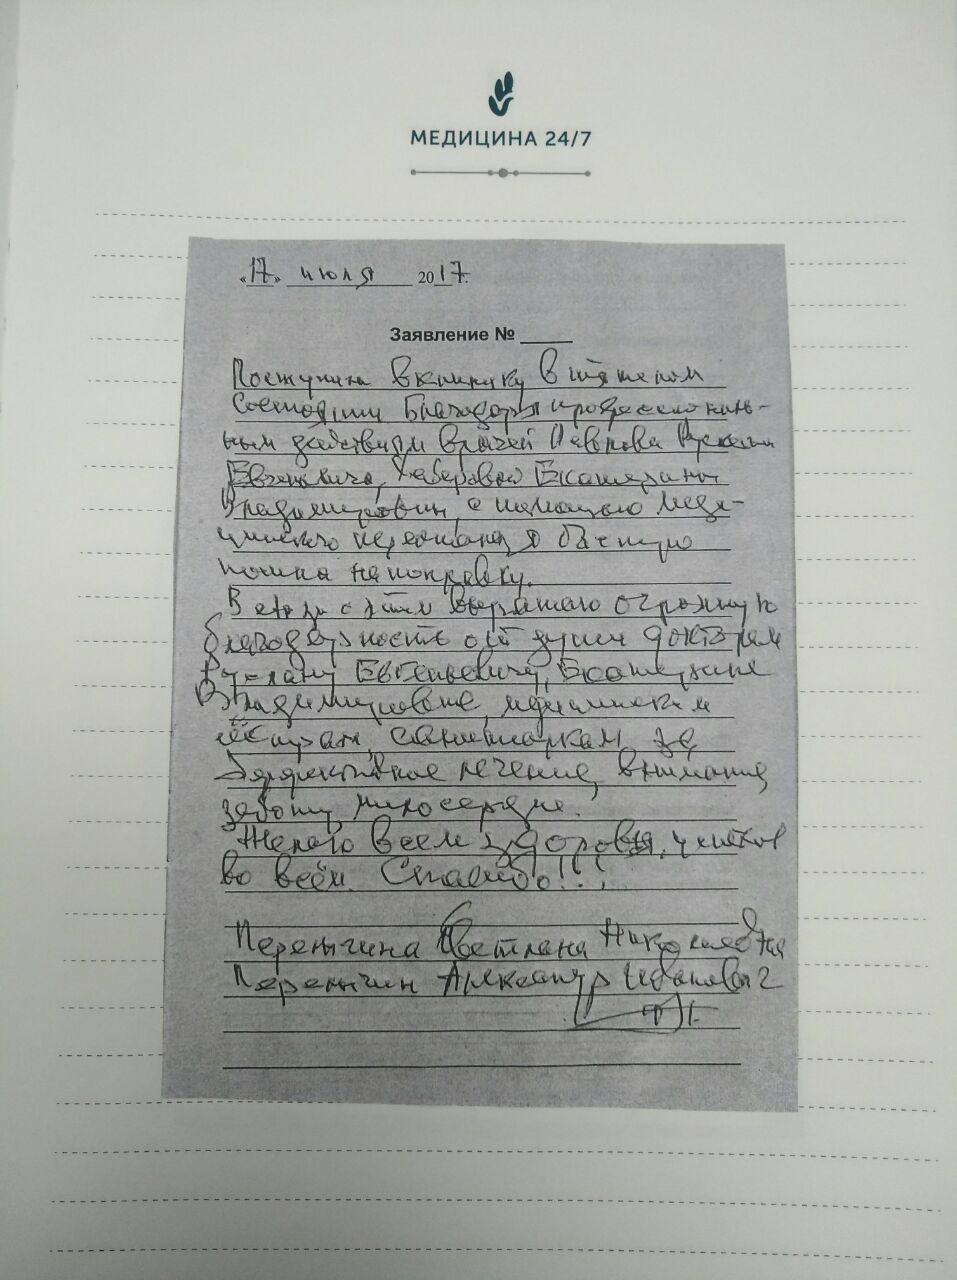 МЕДИЦИНА 24/7
«17» июля 2017г.
Заявление № ____
Поступила в клинику в тяжелом
состоянии Благодаря профессиональ-
ным действиям врачей Руслана
Евгеньевича, Хаберовой Екатерины
Владимировны, с помощью меди-
цинского персонала я быстро
пошла на поправку.
В связи с этим выражаю огромную
благодарность от души докторам
Руслану Евгеньевичу, Екатерине
Владимировне, медицинским
сёстрам, санитаркам за
эффективное лечение, внимание,
заботу, милосердие.
Желаю всем здоровья, успехов
во всём. Спасибо!!!
Перемычина Светлана Николаевна
Перемычин Александр Иванович